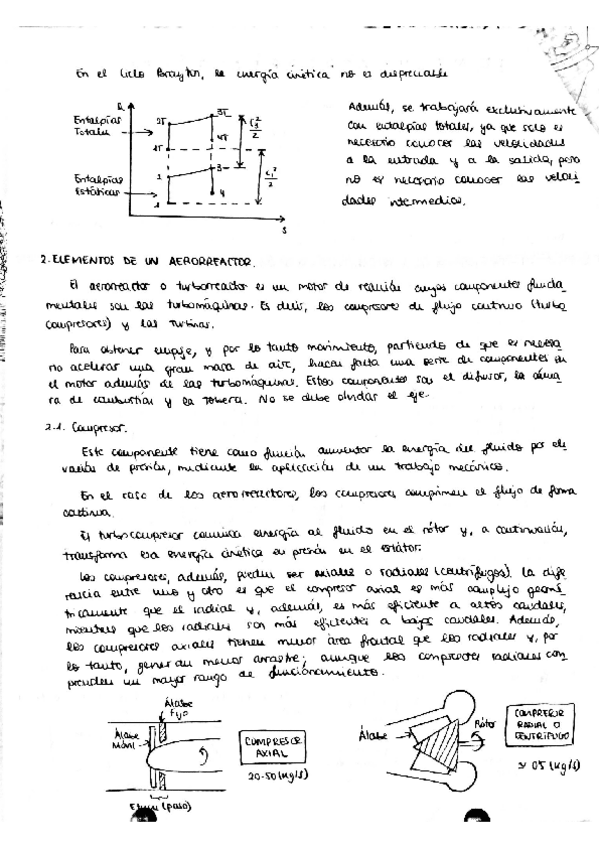 En el Ciclo Brayton, la energía cinética no es despreciable
h
Entalpías
Totales
2T
3T
4T
1T
C3²/2
C1²/2
Entalpías
Estáticas
2
3
4
1
S
Además, se trabajará exclusivamente
con entalpías totales, ya que solo es
necesario conocer las velocidades
a la entrada y a la salida, pero
no es necesario conocer las veloci-
dades intermedias.
2. ELEMENTOS DE UN AERORREACTOR.
El aerorreactor o turborreactor es un motor de reacción cuyos componentes funda-
mentales son las turbomáquinas. Es decir, los compresores de flujo continuo (turbo
compresores) y las turbinas.
Para obtener empuje, y por lo tanto movimiento, partiendo de que es necesa-
rio acelerar una gran masa de aire, hacen falta una serie de componentes en
el motor además de las turbomáquinas. Estos componentes son el difusor, la cáma-
ra de combustión y la tobera. No se debe olvidar el eje.
2.1. Compresor.
Este componente tiene como función aumentar la energía del fluido por ele-
vación de presión, mediante la aplicación de un trabajo mecánico.
En el caso de los aerorreactores, los compresores comprimen el flujo de forma
continua.
El turbocompresor comunica energía al fluido en el rótor y, a continuación,
transforma esa energía cinética en presión en el estátor.
Los compresores, además, pueden ser axiales o radiales (centrífugos). La dife-
rencia entre uno y otro es que el compresor axial es más complejo geomé-
tricamente que el radial y, además, es más eficiente a altos caudales,
mientras que los radiales son más eficientes a bajos caudales. Además,
los compresores axiales tienen menor área frontal que los radiales y, por
lo tanto, generan menor arrastre; aunque los compresores radiales com-
prenden un mayor rango de funcionamiento.
Álabe
Fijo
Álabe
Móvil
COMPRESOR
AXIAL
20-50 (kg/s)
Etapa (paso)
Álabe
Rótor
COMPRESOR
RADIAL O
CENTRÍFUGO
(kg/s)